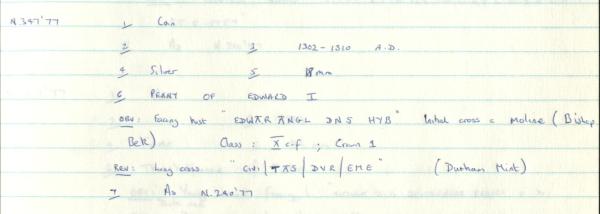 N.347'77 1 Coin
2 3 1302-1310 A.D.
4 Silver 5 18mm
6 PENNY OF EDWARD I
OBV: Facing bust "EDWAR ANGL DNS HYB" Initial cross a moline (Bishop
Bek) Class: X c-f ; Crown 1
REV: Long cross "CIVI/TAS/DVR/EME" (Durham Mint)
7 As N.280'77